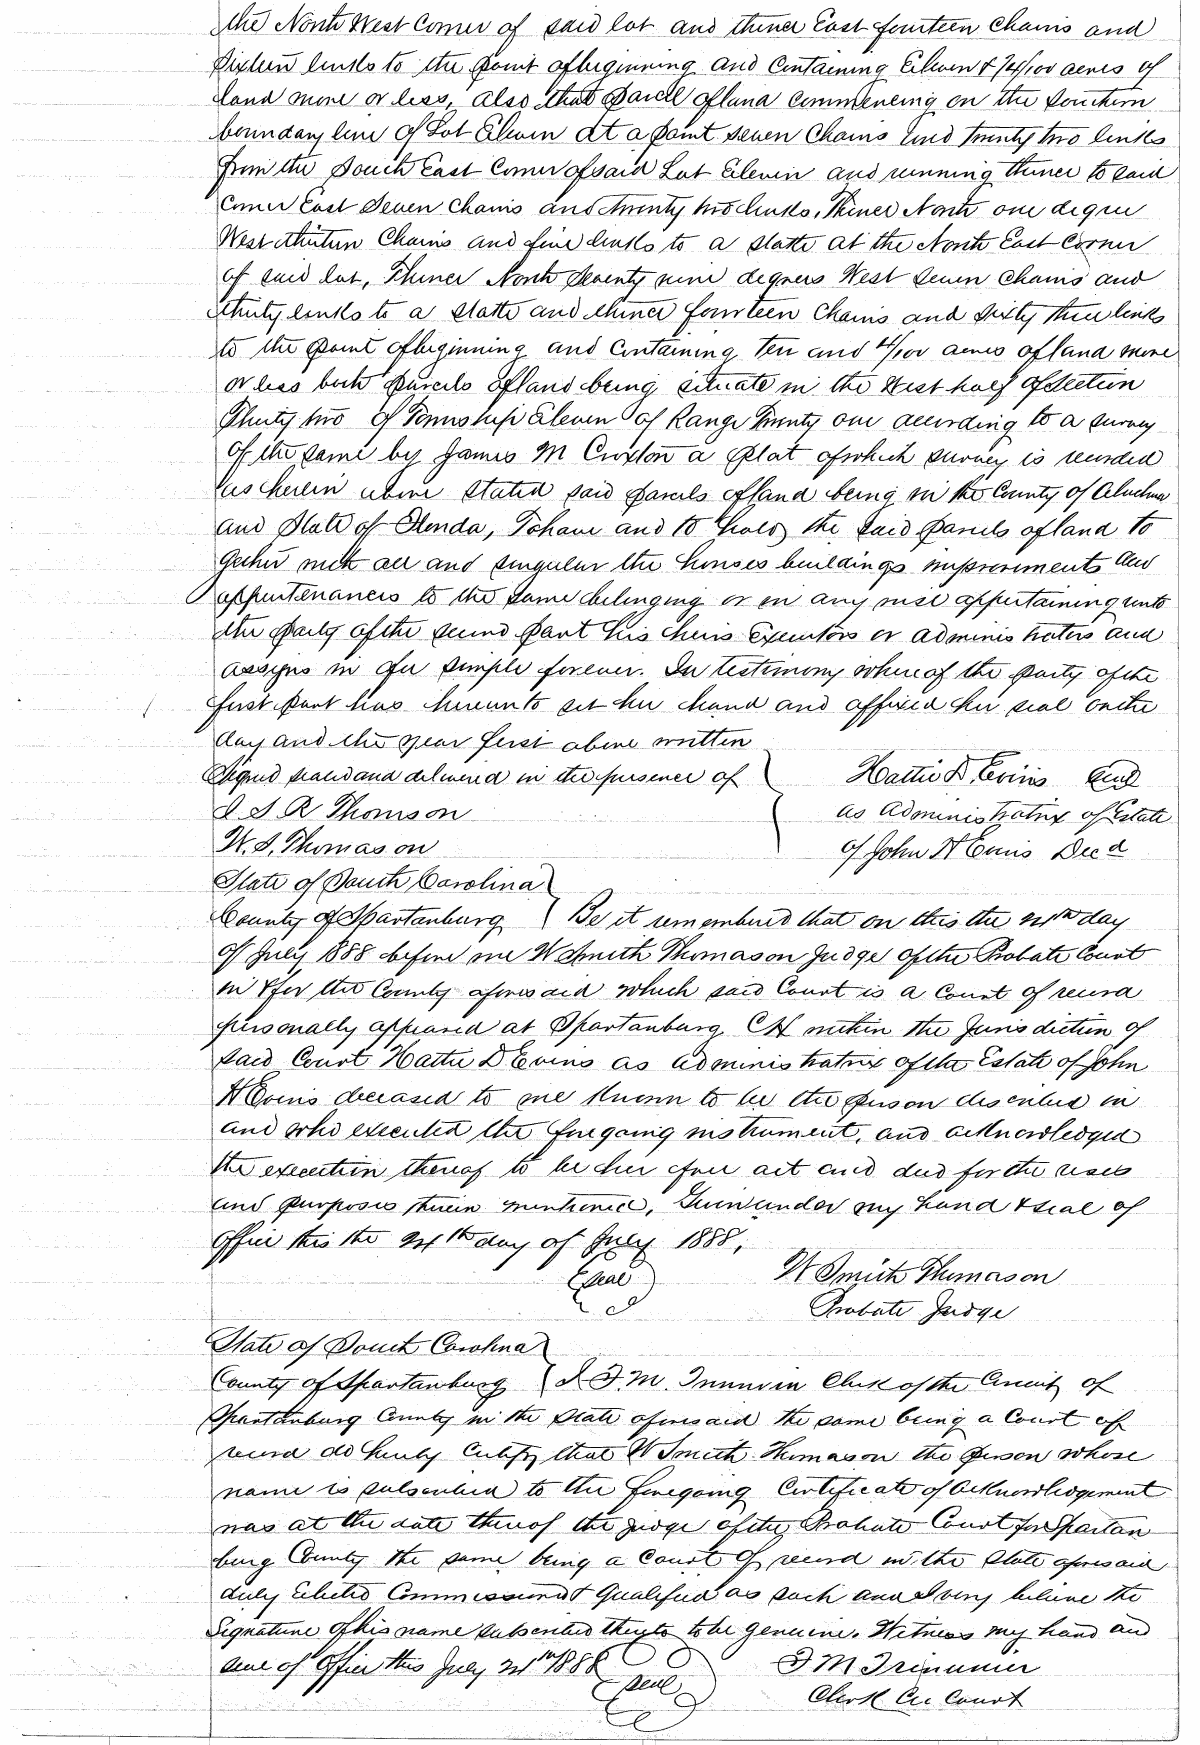 the North West Corner of said lot and thence East fourteen Chains and
Sixteen links to the point of beginning and Containing Eleven & 74/100 acres of
land more or less, also that parcel of land commencing on the Southern
boundary line of Lot Eleven at a point seven Chains and twenty two links
from the South East Corner of said Lot Eleven and running thence to said
Corner East Seven Chains and twenty two links, Thence North one degree
West thirteen Chains and five links to a stake at the North East Corner
of said lot, Thence North Seventy nine degrees West Seven Chains and
thirty links to a stake and thence fourteen Chains and sixty three links
to the point of beginning and Containing Ten and /100 acres of land more
or less both parcels of land being situate in the West half of Section
Thirty two of Township Eleven of Range Twenty one according to a survey
of the same by James M Croxton a plat of which survey is recorded
as herein above stated said parcels of land being in the County of Alachua
and State of Florida, To have and to hold the said parcels of land to
gether with all and singular the houses buildings improvements and
appurtenances to the same belonging or in any wise appertaining unto
the party of the second part his heirs Executors or administrators and
assigns in fee simple forever. In testimony whereof the party of the
first part has hereunto set her hand and affixed her seal on the
day and the year first above written
Signed sealed and delivered in the presence of Hattie D. Evins Seal
S. R Thomson as Administratrix of Estate
W. S. Thomason of John H Evins Decd
State of South Carolina
County of Spartanburg Be it remembered that on this the 24th day
of July 1888 before me W Smith Thomason Judge of the Probate Court
in & for the County aforesaid which said Court is a Court of record
personally appeared at Spartanburg CH within the Jurisdiction of
said Court Hattie D Evins as administratrix of the Estate of John
H Evins deceased to me known to be the person described in
and who executed the foregoing instrument, and acknowledged
the execution thereof to be her free act and deed for the uses
and purposes therein mentioned, Given under my hand & seal of
office this the 24th day of July 1888,
Seal W Smith Thomason
Probate Judge
State of South Carolina
County of Spartanburg I F. M. Trimmier Clerk of the Circuit of
Spartanburg County in the State aforesaid the same being a Court of
record do hereby Certify that W Smith Thomason the person whose
name is subscribed to the foregoing Certificate of Acknowledgement
was at the date thereof the judge of the Probate Court for Spartan
burg County the same being a Court of record in the State aforesaid
duly Elected Commissioned & Qualified as such and I very believe the
Signature of his name subscribed thereto to be genuine. Witness my hand and
seal of Office this July 24th 1888 F M Trimmier
Seal Clerk Cir Court